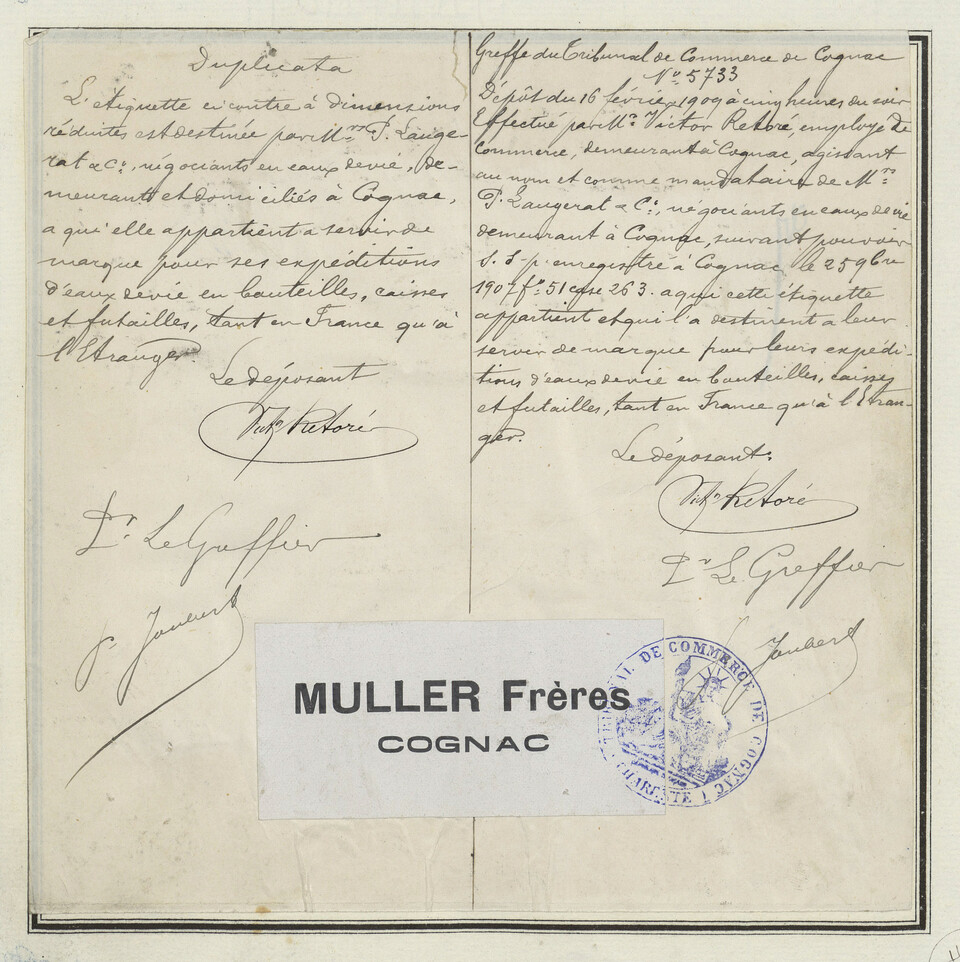 Duplicata
L'étiquette ci contre à dimensions
réduites est destinée par Mrs P. Lauge-
rat & Cie, négociants en eaux de vie, de-
meurants et domiciliés à Cognac,
a qui elle appartient a servir de
marque pour ses expéditions
d'eaux de vie en bouteilles, caisses
et futailles, tant en France qu'à
l'Etranger.
Le déposant
Victor Retoré
Pr Le Greffier
Joubert
Greffe du Tribunal de Commerce de Cognac
No 5733
Dépôt du 16 février 1909 à cinq heures du soir
Effectué par Mr Victor Retoré, employé de
Commerce, demeurant à Cognac, agissant
au nom et comme mandataire de Mrs
P. Laugerat & Cie, négociants en eaux de vie
demeurant à Cognac, suivant pouvoir
S. S. p. enregistré à Cognac le 25 9bre
1907 fo 51 case 263. a qui cette étiquette
appartient et qui l'a destinent a leur
servir de marque pour leurs expédi-
tions d'eaux de vie en bouteilles, caisses
et futailles, tant en France qu'à l'Etran-
ger.
Le déposant.
Victor Retoré
Pr Le Greffier
Joubert
MULLER Frères
COGNAC
TRIBUNAL DE COMMERCE DE COGNAC
CHARENTE